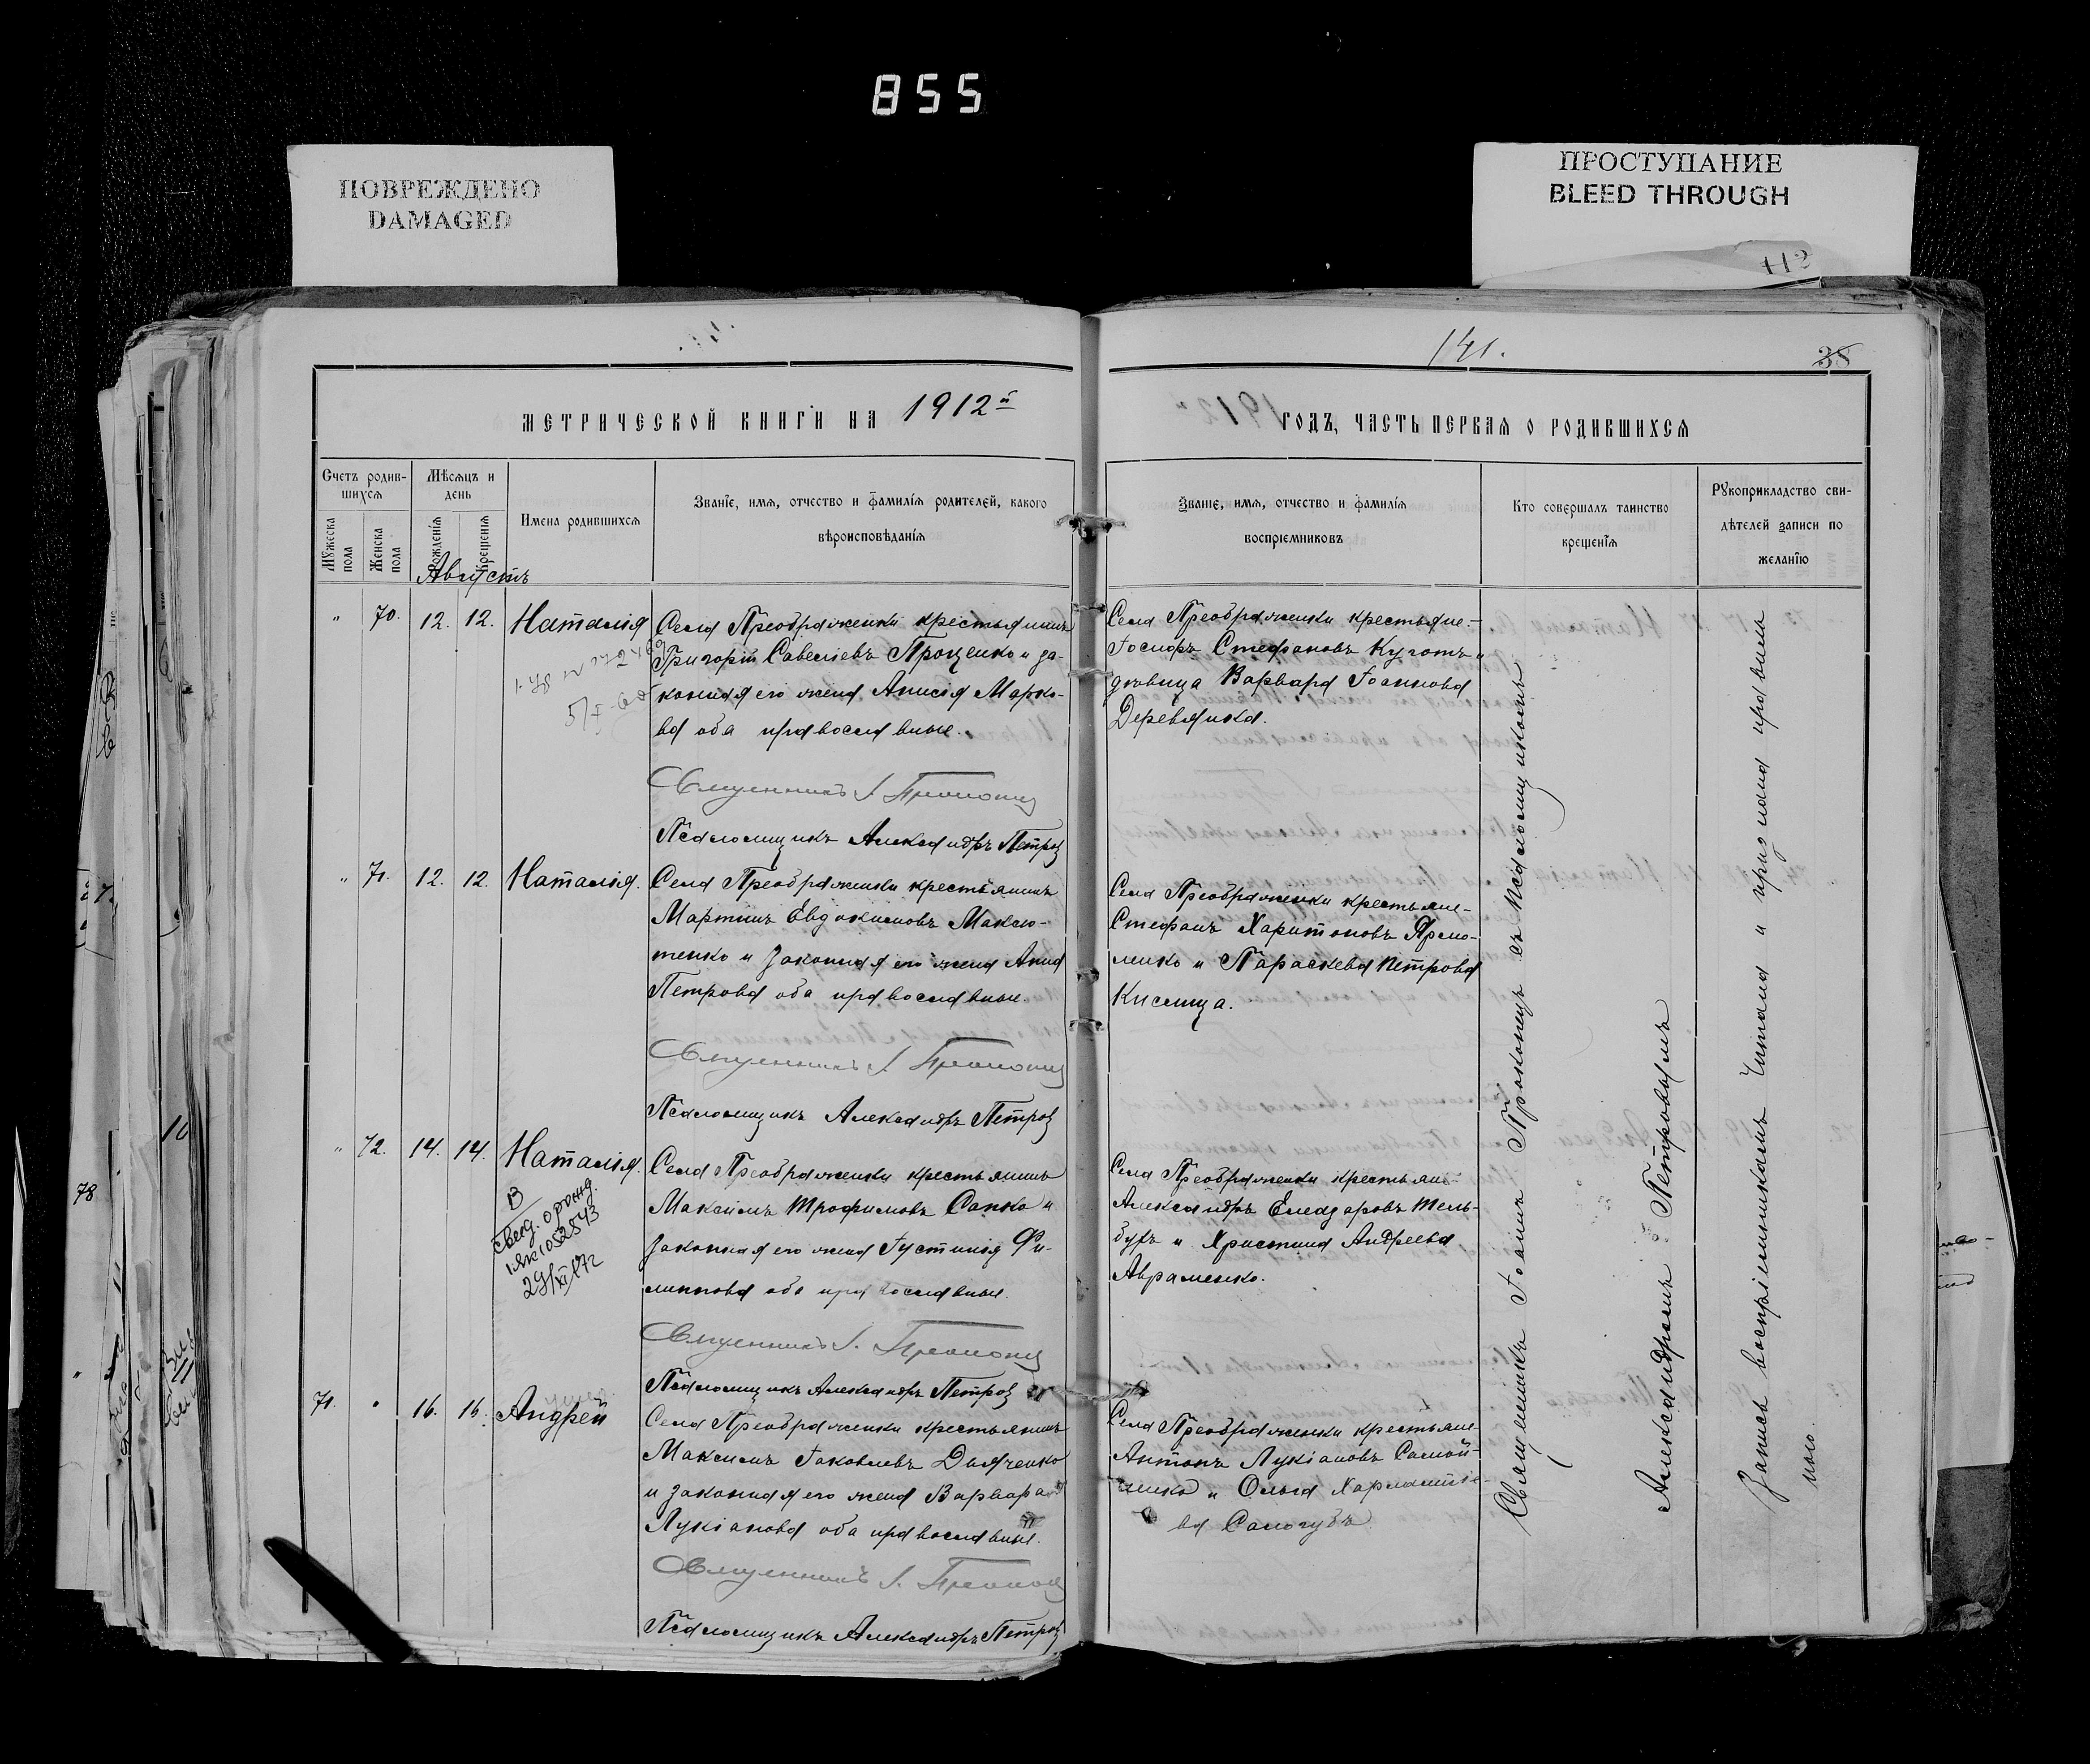 855
ПОВРЕЖДЕНО
DAMAGED
ПРОСТУПАНИЕ
BLEED THROUGH
112
141.
38
МЕТРИЧЕСКОЙ КНИГИ НА 1912й
ГОДЪ, ЧАСТЬ ПЕРВАЯ О РОДИВШИХСЯ
Счетъ родив-
шихся
Мужеска пола
Женска пола
Мѣсяцъ и
день
Рожденія
Крещенія
Имена родившихся
Званіе, имя, отчество и фамилія родителей, какого
вѣроисповѣданія
Званіе, имя, отчество и фамилія
воспріемниковъ
Кто совершалъ таинство
крещенія
Рукоприкладство сви-
дѣтелей записи по
желанію
Августъ
" 70. 12. 12. Наталія
Села Преображенки крестьянинъ
Григорій Савеліевъ Проценко и за-
конная его жена Анисія Марко-
ва оба православные.
Священникъ І. Прокопец
Псаломщикъ Александръ Петров
Села Преображенки крестьяне:
Іосифъ Стефановъ Куготъ и
дѣвица Варвара Іоаннова
Деревянка.
" 71. 12. 12. Наталія.
Села Преображенки крестьянинъ
Мартинъ Евдокимовъ Максю-
тенко и законная его жена Анна
Петрова оба православные.
Священникъ І. Прокопец
Псаломщикъ Александръ Петров
Села Преображенки крестьяне-
Стефанъ Харитоновъ Ярмо-
ленко и Параскева Петрова
Кислица.
" 72. 14. 14. Наталія.
В
свид. о рожд.
1052543
29/XI 72
Села Преображенки крестьянинъ
Максимъ Трофимовъ Сапко и
законная его жена Іустинія Фи-
липпова оба православные.
Священникъ І. Прокопец
Псаломщикъ Александръ Петров
Села Преображенки крестьяне-
Александръ Елеазаровъ Тель-
бухъ и Христина Андреева
Авраменко.
71. " 16. 16. Андрей
Села Преображенки крестьянинъ
Максимъ Іаковлевъ Дьяченко
и законная его жена Варвара
Лукіанова оба православные.
Священникъ І. Прокопец
Псаломщикъ Александръ Петров
Села Преображенки крестьяне-
Антонъ Лукіановъ Самой-
ленко и Ольга Харлампіе-
ва Сологубъ
Священникъ Іоаннъ Прокопецъ съ псаломщикомъ
Александромъ Петровымъ
Запись воспріемникамъ читана и признана правиль
ною.
78
10